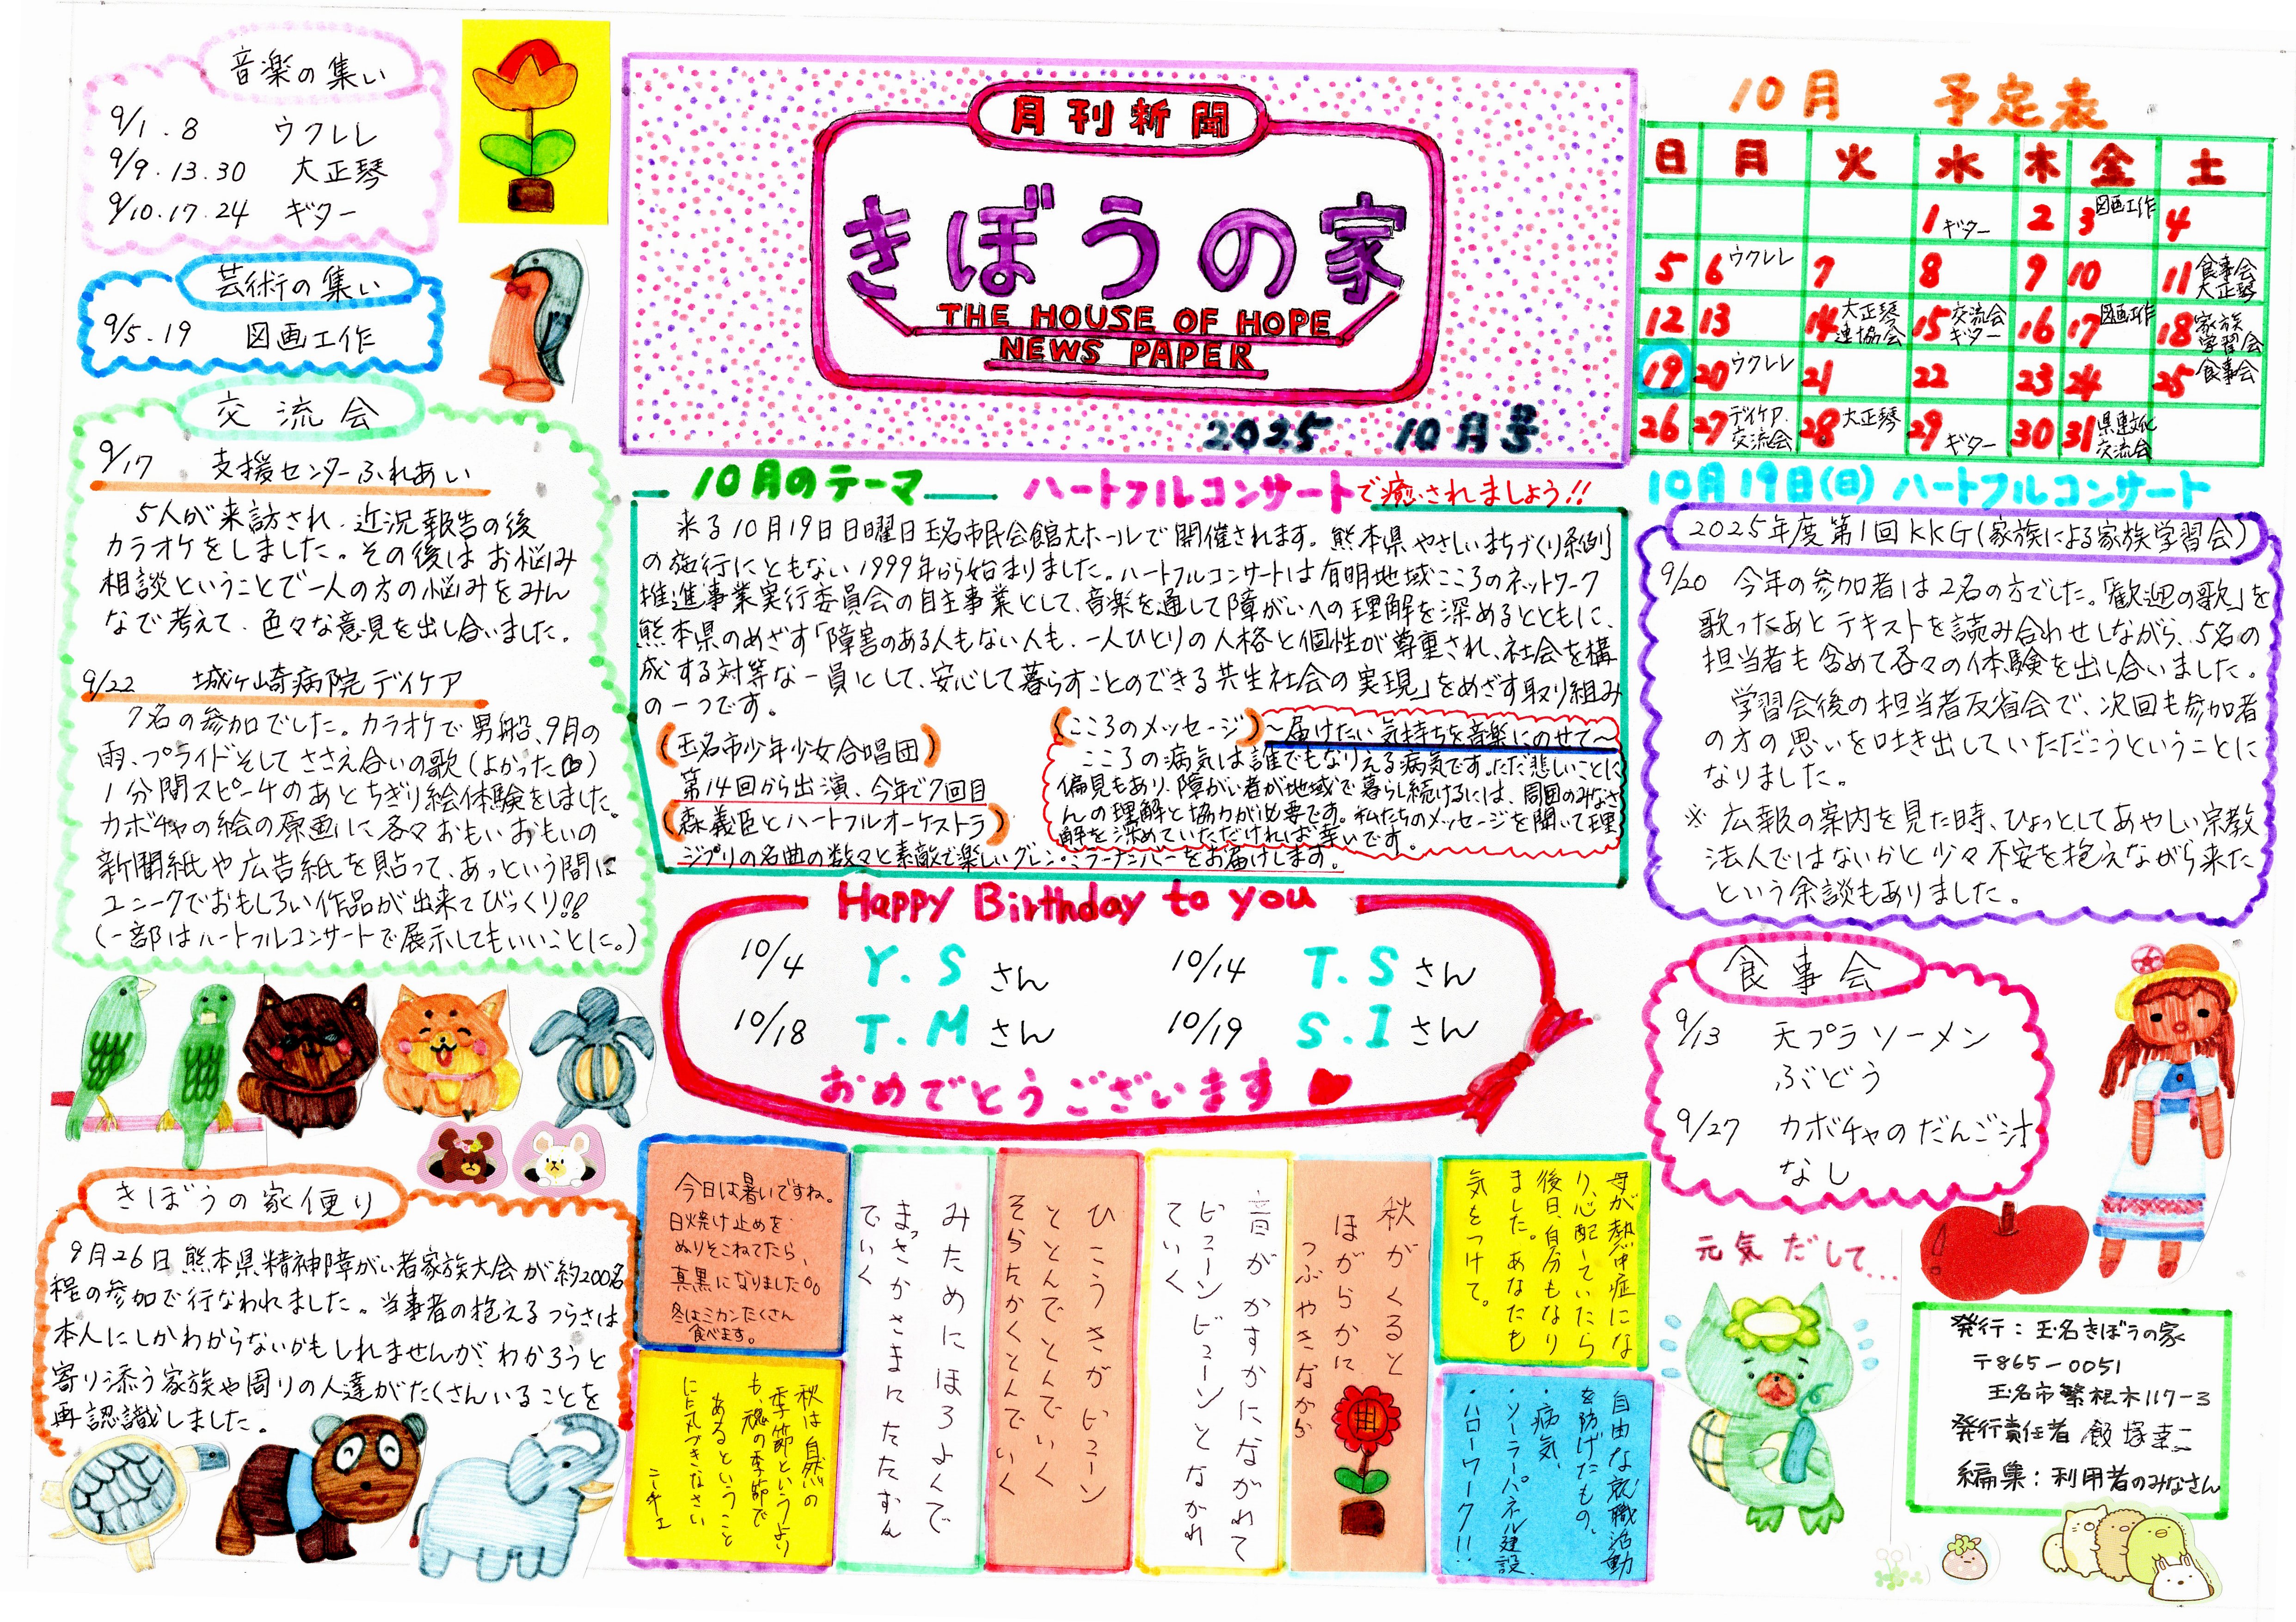 月刊新聞
きぼうの家
THE HOUSE OF HOPE
NEWS PAPER
2025 10月号
音楽の集い
9/1.8 ウクレレ
9/9.13.30 大正琴
9/10.17.24 ギター
芸術の集い
9/5.19 図画工作
交流会
9/17 支援センターふれあい
5人が来訪され、近況報告の後
カラオケをしました。その後はお悩み
相談ということで一人の方の悩みをみん
なで考えて、色々な意見を出し合いました。
9/22 城ヶ崎病院デイケア
7名の参加でした。カラオケで男船、9月の
雨、プライドそしてささえ合いの歌(よかった)
1分間スピーチのあとちぎり絵体験をしました。
カボチャの絵の原画に各々おもいおもいの
新聞紙や広告紙を貼って、あっという間に
ユニークでおもしろい作品が出来てびっくり!!
(一部はハートフルコンサートで展示してもいいことに。)
きぼうの家便り
9月26日熊本県精神障がい者家族大会が約200名
程の参加で行なわれました。当事者の抱えるつらさは
本人にしかわからないかもしれませんが、わかろうと
寄り添う家族や周りの人達がたくさんいることを
再認識しました。
10月のテーマ ハートフルコンサートで癒されましょう!!
来る10月19日日曜日玉名市民会館大ホールで開催されます。熊本県やさしいまちづくり条例
の施行にともない1999年から始まりました。ハートフルコンサートは有明地域こころのネットワーク
推進事業実行委員会の自主事業として、音楽を通して障がいへの理解を深めるとともに、
熊本県のめざす「障害のある人もない人も、一人ひとりの人格と個性が尊重され、社会を構
成する対等な一員として、安心して暮らすことのできる共生社会の実現」をめざす取り組み
の一つです。
(玉名市少年少女合唱団)
第14回から出演、今年で7回目
(森義臣とハートフルオーケストラ)
ジブリの名曲の数々と素敵で楽しいグレン・ミラーナンバーをお届けします。
(こころのメッセージ)～届けたい気持ちを音楽にのせて～
こころの病気は誰でもなりえる病気です。ただ悲しいことに
偏見もあり、障がい者が地域で暮らし続けるには、周囲のみなさ
んの理解と協力が必要です。私たちのメッセージを聞いて理
解を深めていただければ幸いです。
Happy Birthday to you
10/4 Y.Sさん 10/14 T.Sさん
10/18 T.Mさん 10/19 S.Iさん
おめでとうございます
今日は暑いですね。
日焼け止めを
ぬりそこねてたら、
真黒になりました。
冬はミカンたくさん
食べます。
秋は自然の
季節というより
も、魂の季節で
あるということ
に気づきなさい
ニーチェ
みためにほろよくで
まっさかさまにたたずん
でいく
ひこうきがビューン
ととんでとんでいく
そらたかくとんでいく
音がかすかにながれて
ビューンビューンとながれ
ていく
秋がくると
ほがらかに
つぶやきながら
母が熱中症にな
り、心配していたら
後日、自分もなり
ました。あなたも
気をつけて。
自由な就職活動
を防げたもの、
・病気、
・ソーラーパネル建設、
・ハローワーク!!
10月 予定表
日 月 火 水 木 金 土
1 ギター 2 3 図画工作 4
5 6 ウクレレ 7 8 9 10 11 食事会 大正琴
12 13 14 大正琴 連協会 15 交流会 ギター 16 17 図画工作 18 家族学習会
19 20 ウクレレ 21 22 23 24 25 食事会
26 27 デイケア交流会 28 大正琴 29 ギター 30 31 県連文化交流会
10月19日(日)ハートフルコンサート
2025年度第1回KKG(家族による家族学習会)
9/20 今年の参加者は2名の方でした。「歓迎の歌」を
歌ったあとテキストを読み合わせしながら、5名の
担当者も含めて各々の体験を出し合いました。
学習会後の担当者反省会で、次回も参加者
の方の思いを吐き出していただこうということに
なりました。
※広報の案内を見た時、ひょっとしてあやしい宗教
法人ではないかと少々不安を抱えながら来た
という余談もありました。
食事会
9/13 天プラソーメン
ぶどう
9/27 カボチャのだんご汁
なし
元気だして...
発行:玉名きぼうの家
〒865-0051
玉名市繁根木117-3
発行責任者 飯塚幸二
編集:利用者のみなさん